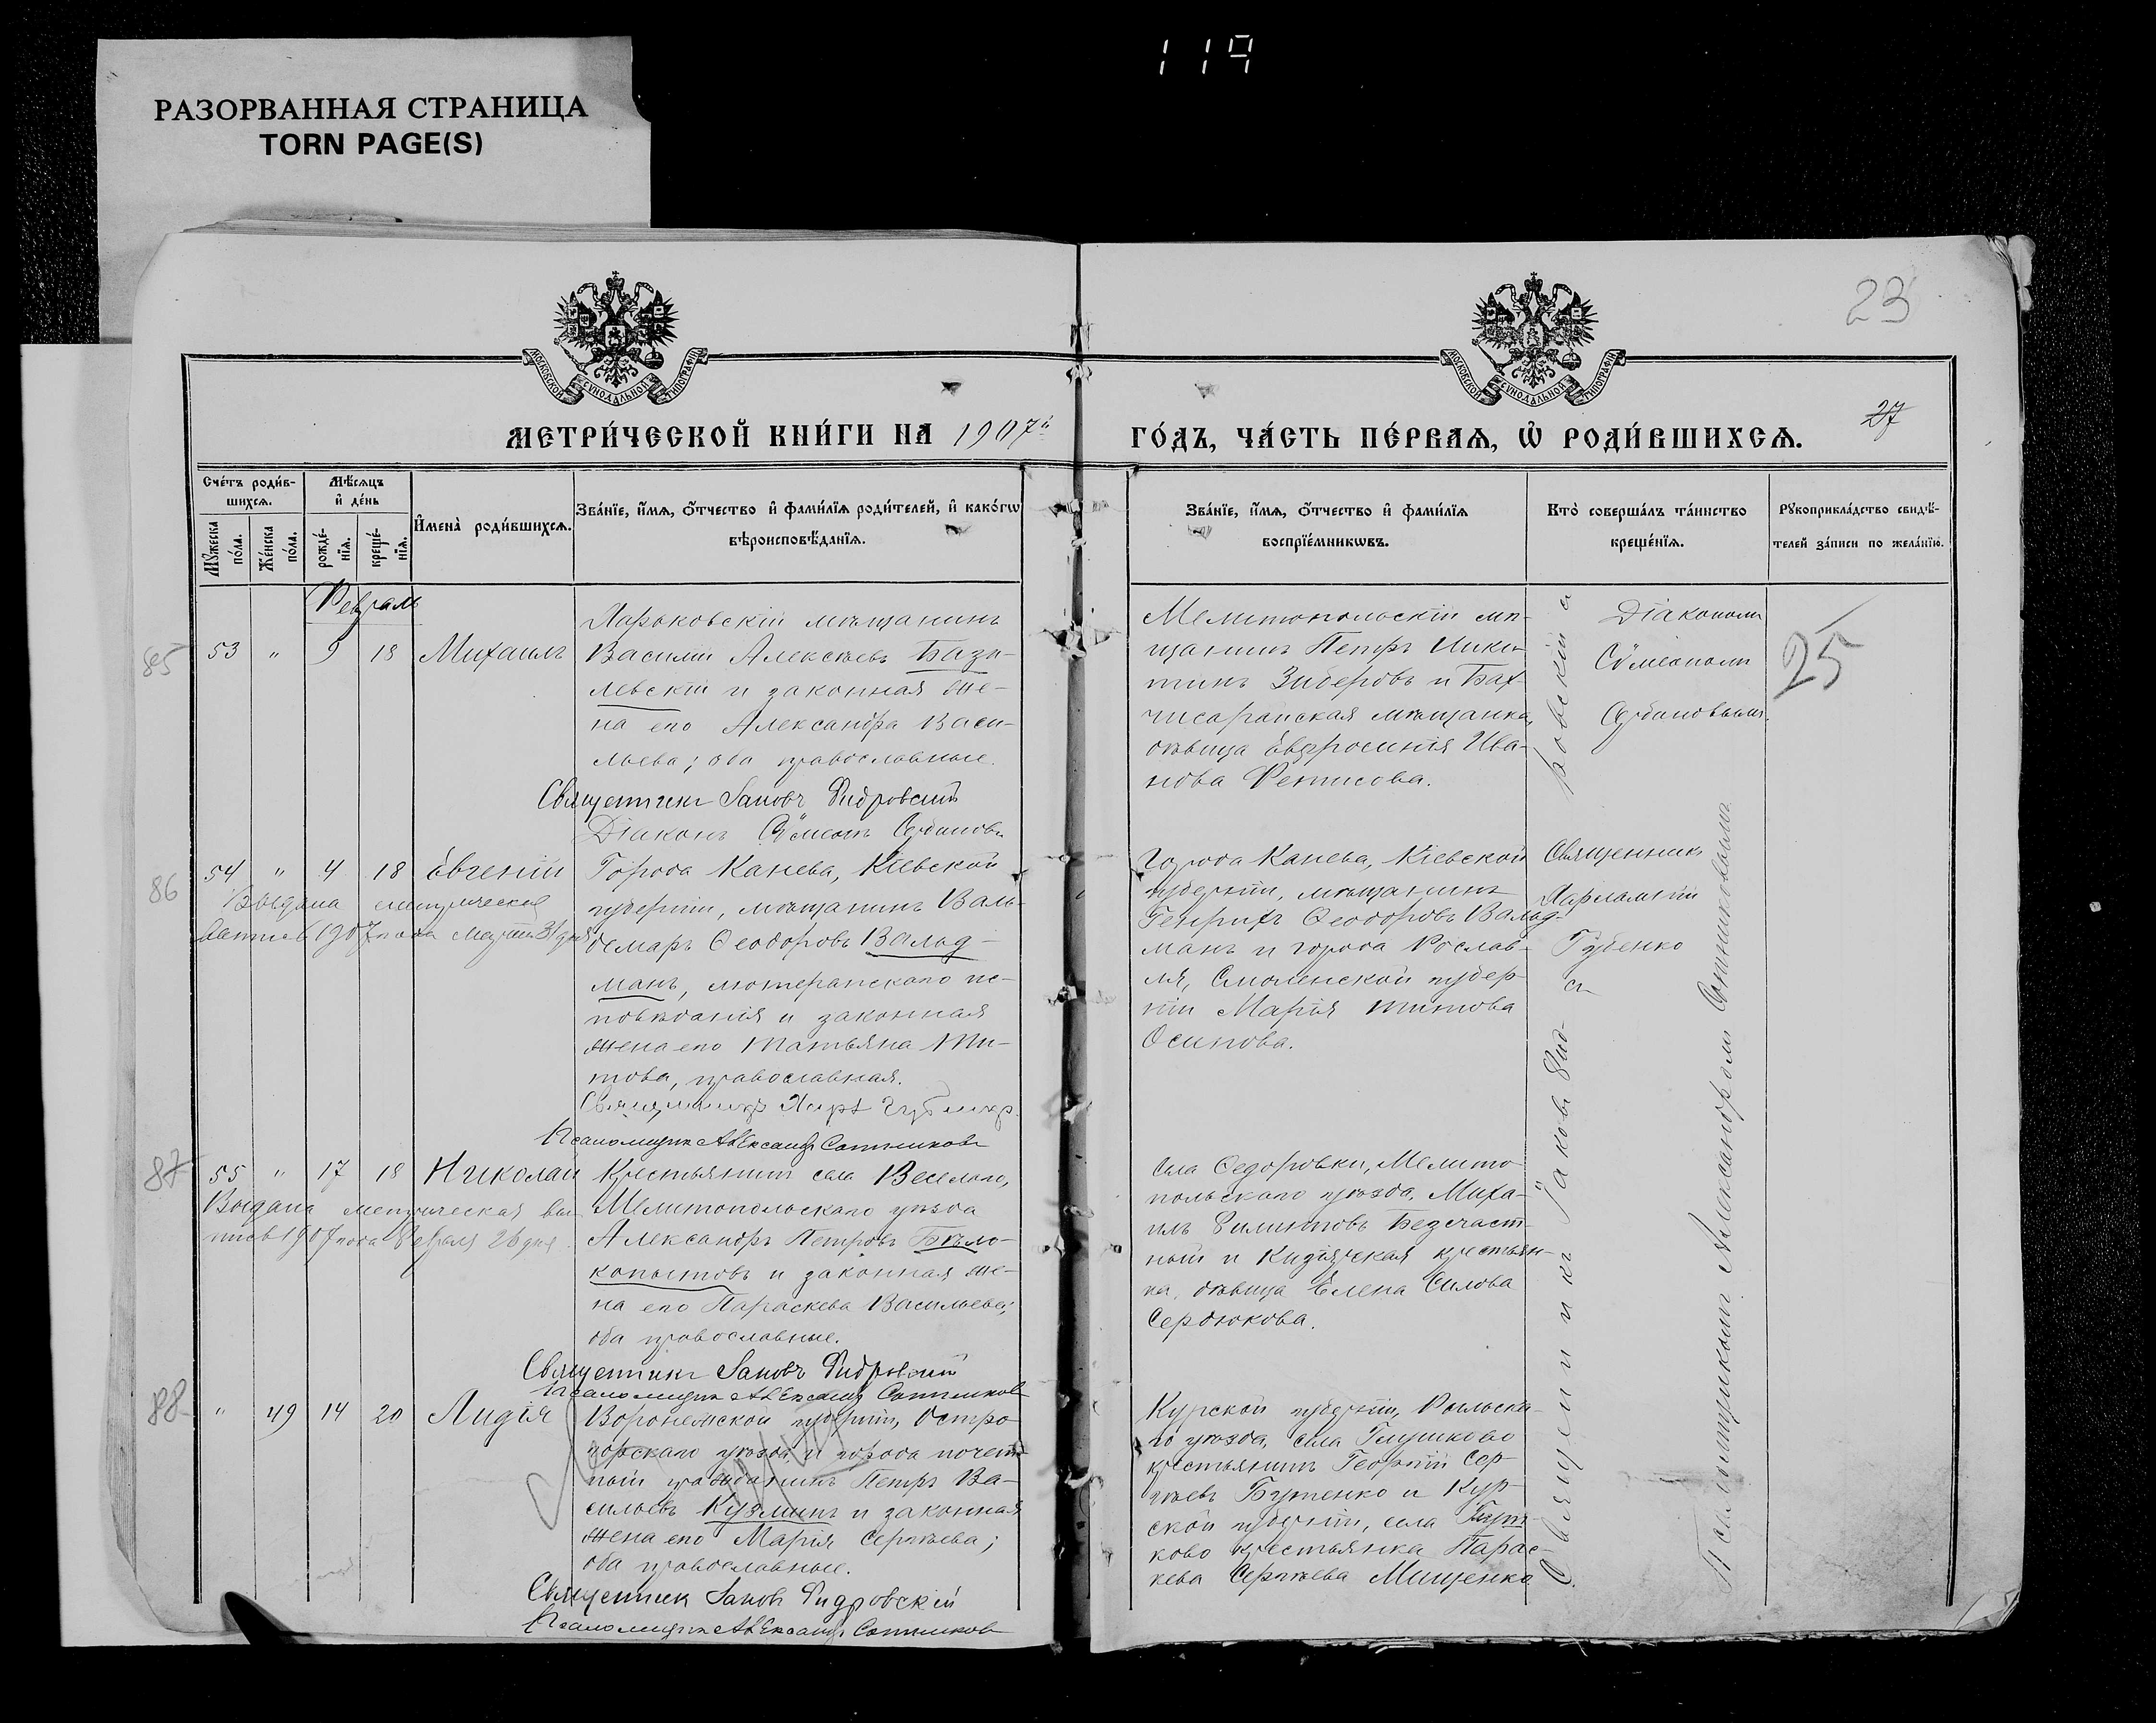 119
РАЗОРВАННАЯ СТРАНИЦА
TORN PAGE(S)
23
27
МОСКОВСКОЙ СѴНОДАЛЬНОЙ ТИПОГРАФІИ
МОСКОВСКОЙ СѴНОДАЛЬНОЙ ТИПОГРАФІИ
МЕТРИ́ЧЕСКОЙ КНИ́ГИ НА 1907й
ГО́ДЪ, ЧА́СТЬ ПЕ́РВАѦ, Ѡ РОДИ́ВШИХСѦ.
Сче́тъ роди́в-
шихсѧ.
Мѣ́сѧцъ
и҆ де́нь
Мꙋжеска
по́ла.
Же́нска
по́ла.
рожде́-
нїѧ.
креще́-
нїѧ.
И҆мена̀ роди́вшихсѧ.
Зва́нїе, и҆́мѧ, ѻ҆́тчество и҆ фами́лїѧ роди́телей, и҆ како́гѡ
вѣроисповѣ́данїѧ.
Зва́нїе, и҆́мѧ, ѻ҆́тчество и҆ фами́лїѧ
воспрїе́мникѡвъ.
Кто̀ соверша́лъ та́инство
креще́нїѧ.
Рꙋкоприкла́дство свидѣ́-
телей за́писи по жела́нїю.
Февраль
85
53 " 9 18 Михаилъ
Харьковскій мѣщанинъ
Василій Алексѣевъ Бази-
левскій и законная же-
на его Александра Васи-
льева; оба православные.
Священникъ Іаковъ Видровскій
Діаконъ Сѵмеонъ Сербиновъ
Мелитопольскій мѣ-
щанинъ Петръ Ники-
тинъ Зиберовъ и Бах-
чисарайская мѣщанка,
дѣвица Евфросинія Ива-
нова Фетисова.
Діакономъ
Сѵмеономъ
Сербиновымъ.
25
86
54 " 4 18 Евгеній
Выдана метрическая
выпись 1907 года марта 31 дня
Города Канева, Кіевской
губерніи, мѣщанинъ Валь-
демаръ Ѳеодоровъ Вальд-
манъ, лютеранскаго ис-
повѣданія и законная
жена его Татьяна Ти-
това, православная.
Священникъ Харл Губенко
Псаломщикъ Александръ Сотниковъ
Города Канева, Кіевской
губерніи, мѣщанинъ
Генрихъ Ѳеодоровъ Вальд-
манъ и города Рослав-
ля, Смоленской губер-
ніи Марія Титова
Осипова.
Священникъ
Харлампій
Губенко
съ
87
55 " 17 18 Николай
Выдана метрическая вы-
пись 1907 года Февраля 26 дня
Крестьянинъ села Веселаго,
Мелитопольскаго уѣзда
Александръ Петровъ Бѣло-
копытовъ и законная же-
на его Параскева Васильева;
оба православные.
Священникъ Іаковъ Видровскій
Псаломщикъ Александръ Сотниковъ
Села Ѳедоровки, Мелито-
польскаго уѣзда, Миха-
илъ Филиповъ Безсчаст-
ный и Кизіярская крестьян-
ка, дѣвица Елена Силова
Сердюкова.
88
" 49 14 20 Лидія
Воронежской губерніи, Остро-
горскаго уѣзда, и города почет-
ный гражданинъ Петръ Ва-
сильевъ Кузминъ и законная
жена его Марія Сергѣева;
оба православные.
Священникъ Іаковъ Видровскій
Псаломщикъ Александръ Сотниковъ
Курской губерніи, Рыльска-
го уѣзда, села Глушково
крестьянинъ Георгій Сер-
гѣевъ Бутенко и Кур-
ской губерніи, села
ково крестьянка Парас-
кева Сергѣева Мищенко
Священникъ Іаковъ Вид-
ровскій съ
Псаломщикомъ Александромъ Сотниковымъ.